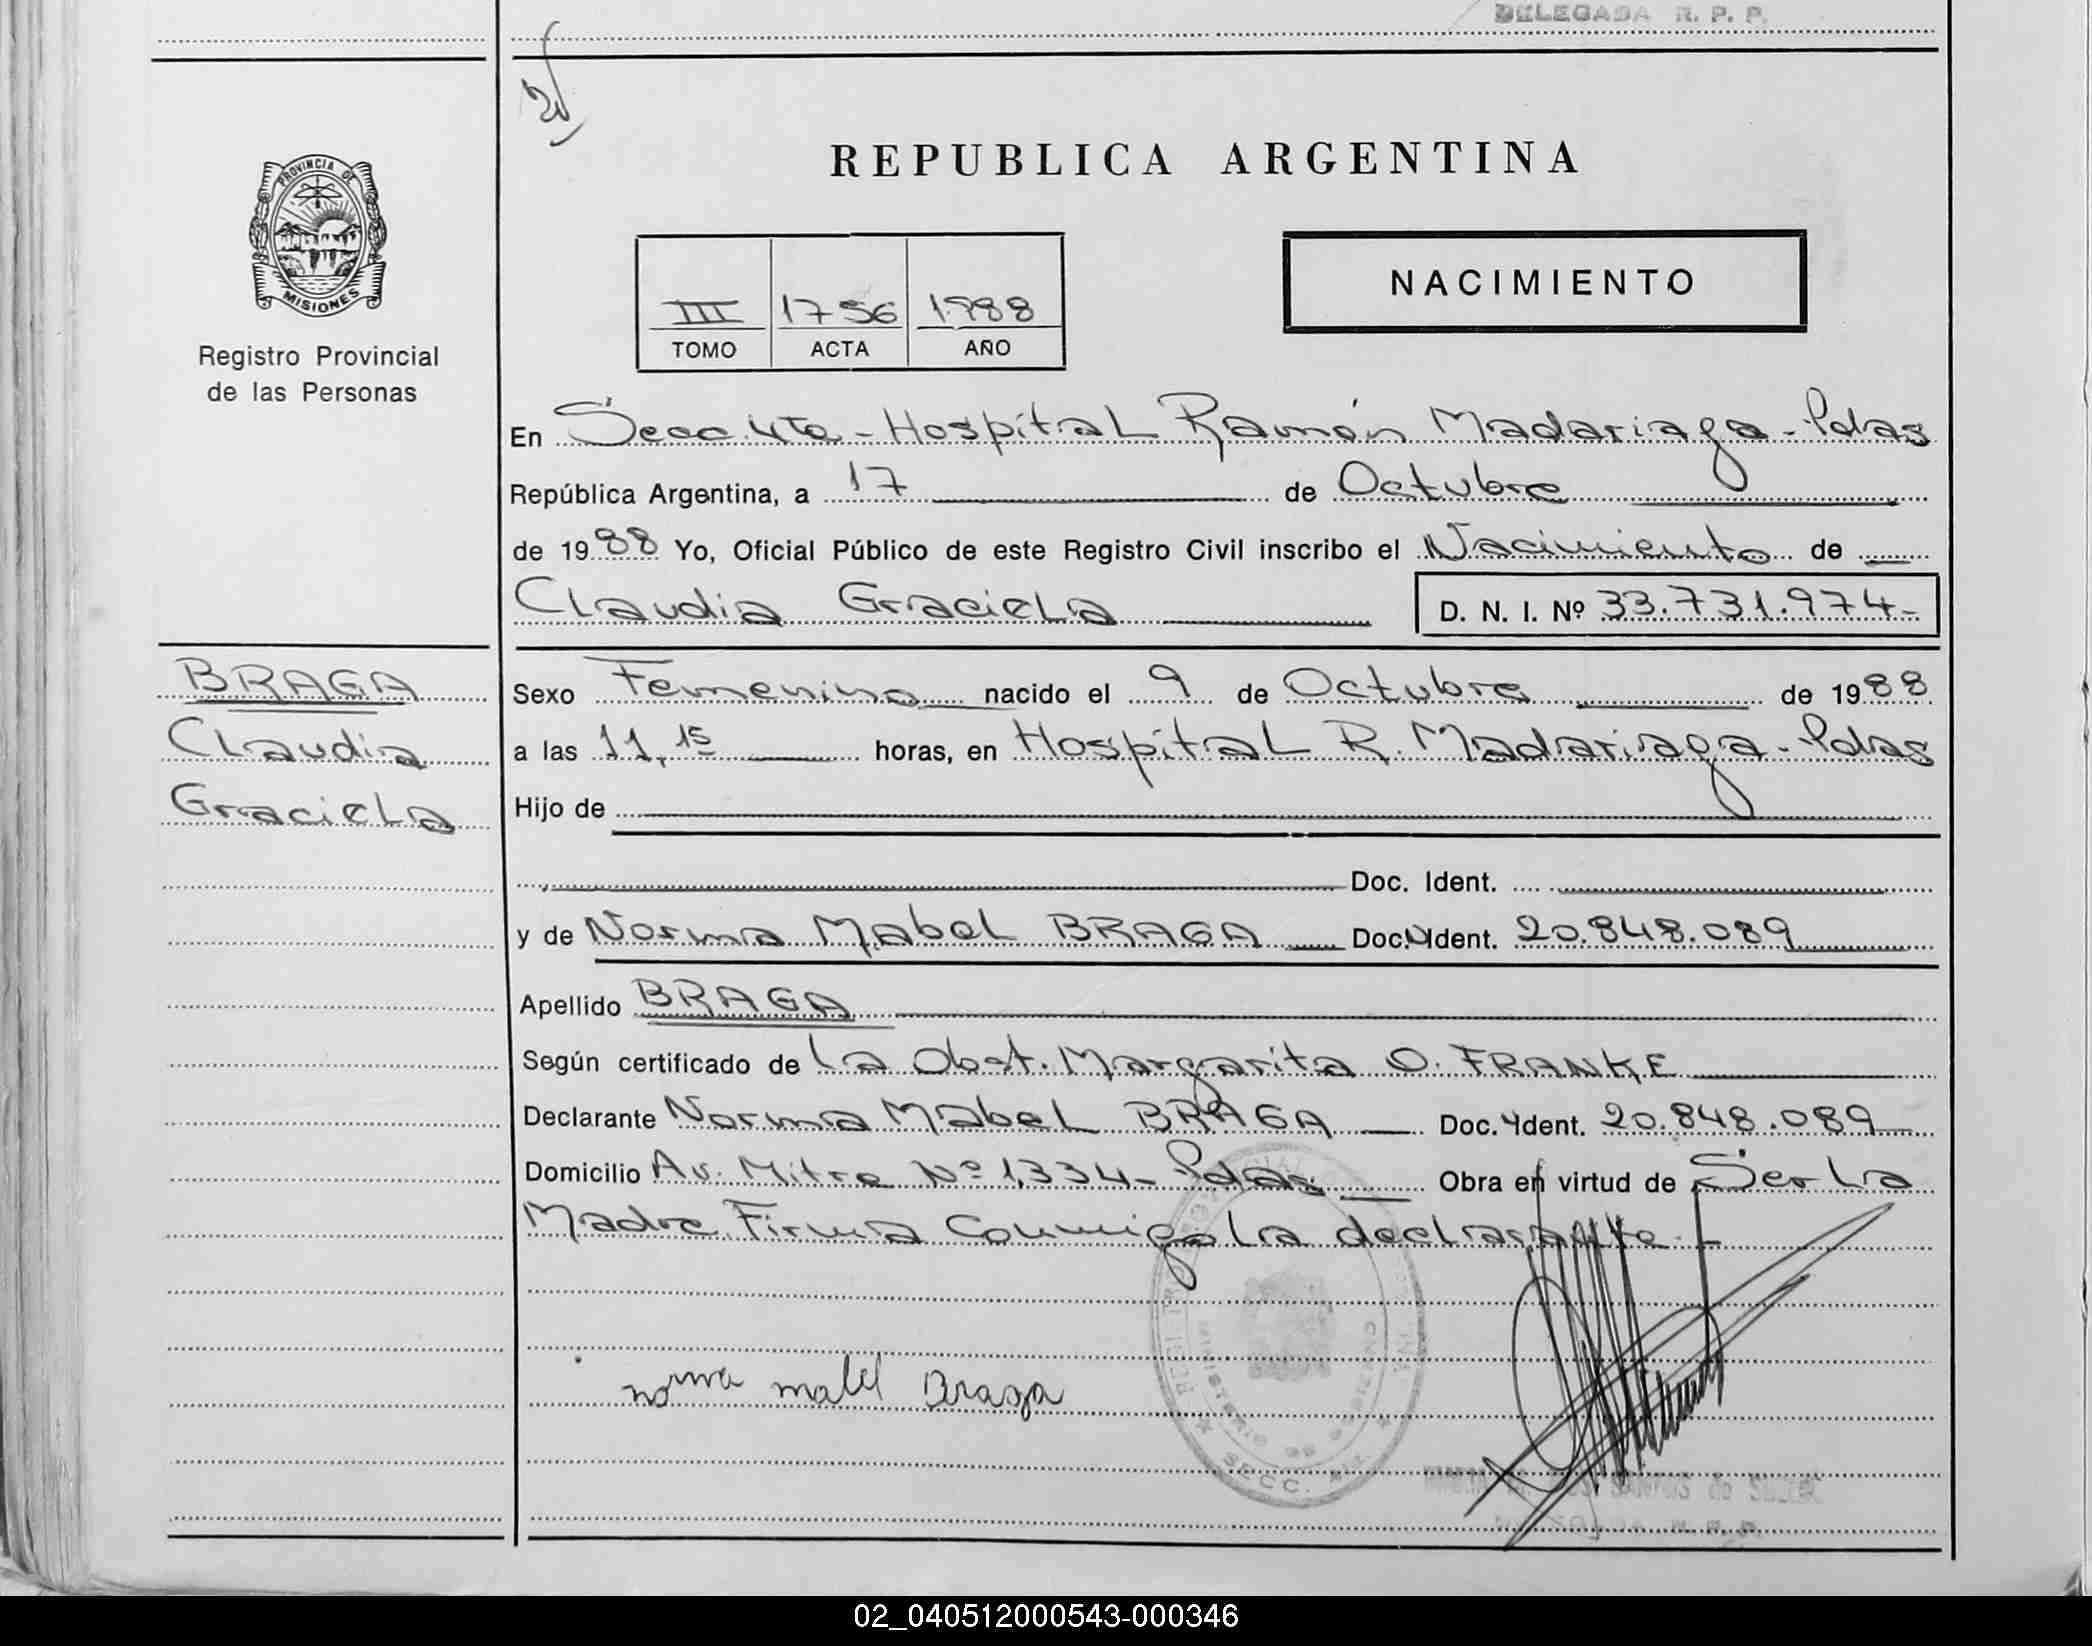 DELEGADA R. P. P.
REPUBLICA ARGENTINA
PROVINCIA DE
MISIONES
Registro Provincial
de las Personas
III 1756 1988
TOMO ACTA AÑO
NACIMIENTO
En Secc. 4ta - Hospital Ramón Madariaga - Pdas
República Argentina, a 17 de Octubre
de 1988 Yo, Oficial Público de este Registro Civil inscribo el Nacimiento de
Claudia Graciela D. N. I. Nº 33.731.974-
BRAGA
Claudia
Graciela
Sexo Femenino nacido el 9 de Octubre de 1988
a las 11,15 horas, en Hospital R. Madariaga - Pdas
Hijo de
Doc. Ident.
y de Norma Mabel BRAGA Doc. Ident. 20.848.089
Apellido BRAGA
Según certificado de la Obst. Margarita O. FRANKE
Declarante Norma Mabel BRAGA Doc. Ident. 20.848.089
Domicilio Av. Mitre Nº 1,334 - Pdas Obra en virtud de Ser la
Madre. Firma Conmigo la declarante.-
norma mabel Braga
SECC.
R. P. P.
02_040512000543-000346